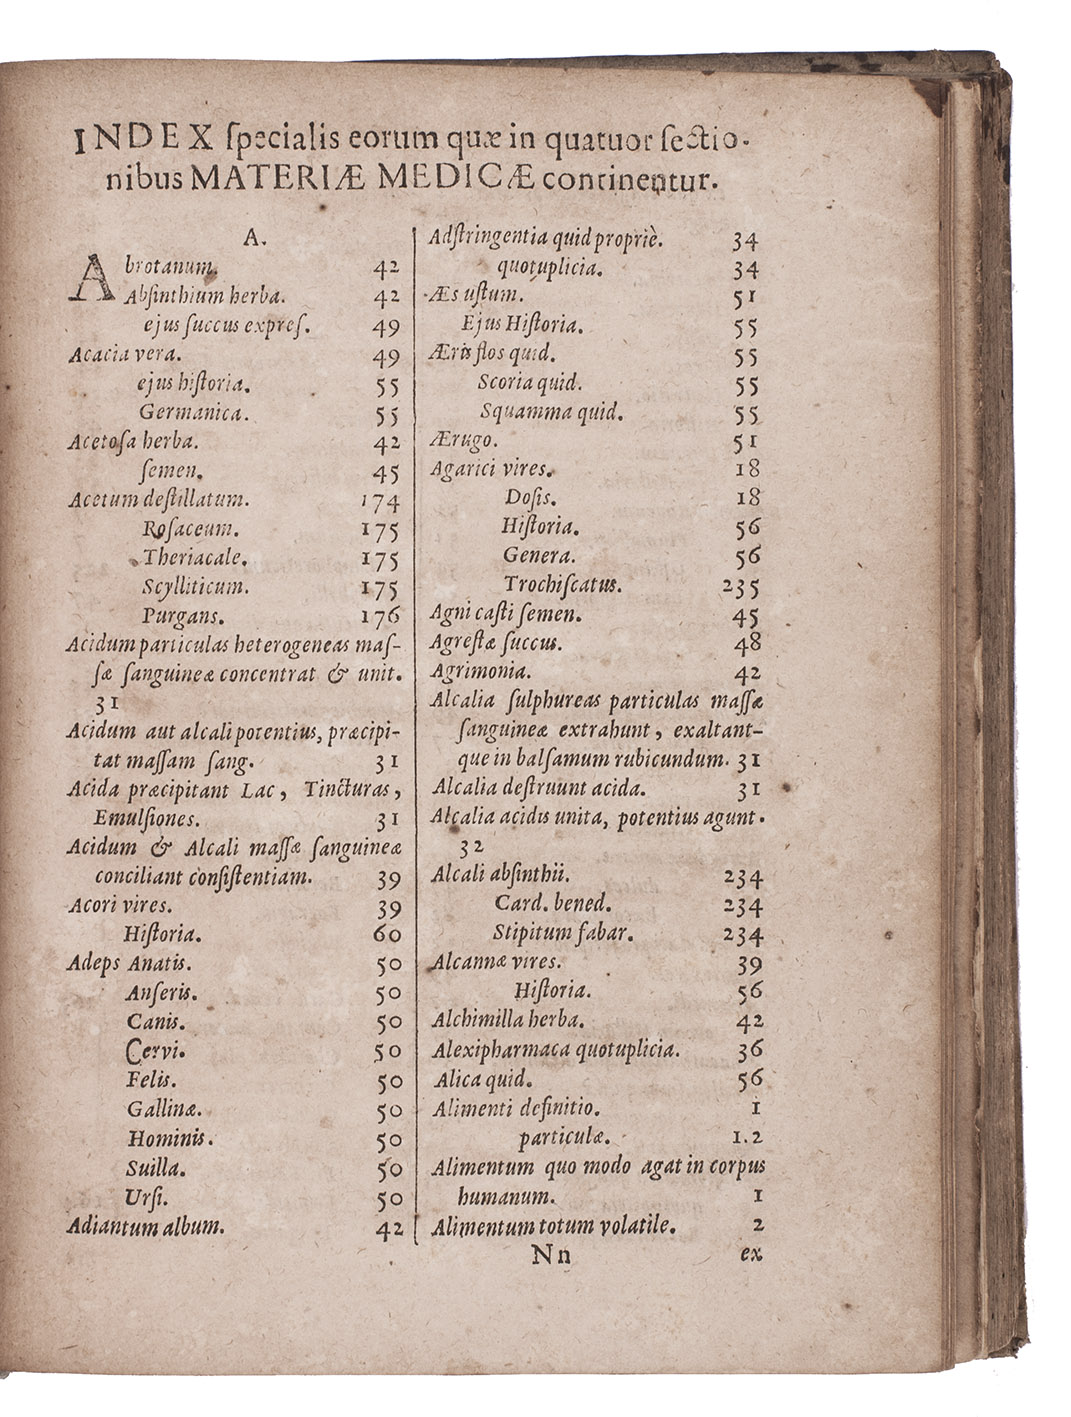 INDEX ſpecialis eorum quæ in quatuor ſectio-
nibus MATERIÆ MEDICÆ continentur.
A.
Abrotanum. 42
Abſinthium herba. 42
ejus ſuccus expreſ. 49
Acacia vera. 49
ejus hiſtoria. 55
Germanica. 55
Acetoſa herba. 42
ſemen. 45
Acetum deſtillatum. 174
Roſaceum. 175
Theriacale. 175
Scylliticum. 175
Purgans. 176
Acidum particulas heterogeneas maſ-
ſæ ſanguineæ concentrat & unit.
31
Acidum aut alcali potentius, præcipi-
tat maſſam ſang. 31
Acida præcipitant Lac, Tincturas,
Emulſiones. 31
Acidum & Alcali maſſæ ſanguineæ
conciliant conſiſtentiam. 39
Acori vires. 39
Hiſtoria. 60
Adeps Anatis. 50
Anſeris. 50
Canis. 50
Cervi. 50
Felis. 50
Gallinæ. 50
Hominis. 50
Suilla. 50
Urſi. 50
Adiantum album. 42
Adſtringentia quid propriè. 34
quotuplicia. 34
Æs uſtum. 51
Ejus Hiſtoria. 55
Æris flos quid. 55
Scoria quid. 55
Squamma quid. 55
Ærugo. 51
Agarici vires. 18
Doſis. 18
Hiſtoria. 56
Genera. 56
Trochiſcatus. 235
Agni caſti ſemen. 45
Agreſtæ ſuccus. 48
Agrimonia. 42
Alcalia ſulphureas particulas maſſæ
ſanguineæ extrahunt, exaltant-
que in balſamum rubicundum. 31
Alcalia deſtruunt acida. 31
Alcalia acidis unita, potentius agunt.
32
Alcali abſinthii. 234
Card. bened. 234
Stipitum fabar. 234
Alcannæ vires. 39
Hiſtoria. 56
Alchimilla herba. 42
Alexipharmaca quotuplicia. 36
Alica quid. 56
Alimenti definitio. 1
particulæ. 1.2
Alimentum quo modo agat in corpus
humanum. 1
Alimentum totum volatile. 2
Nn ex